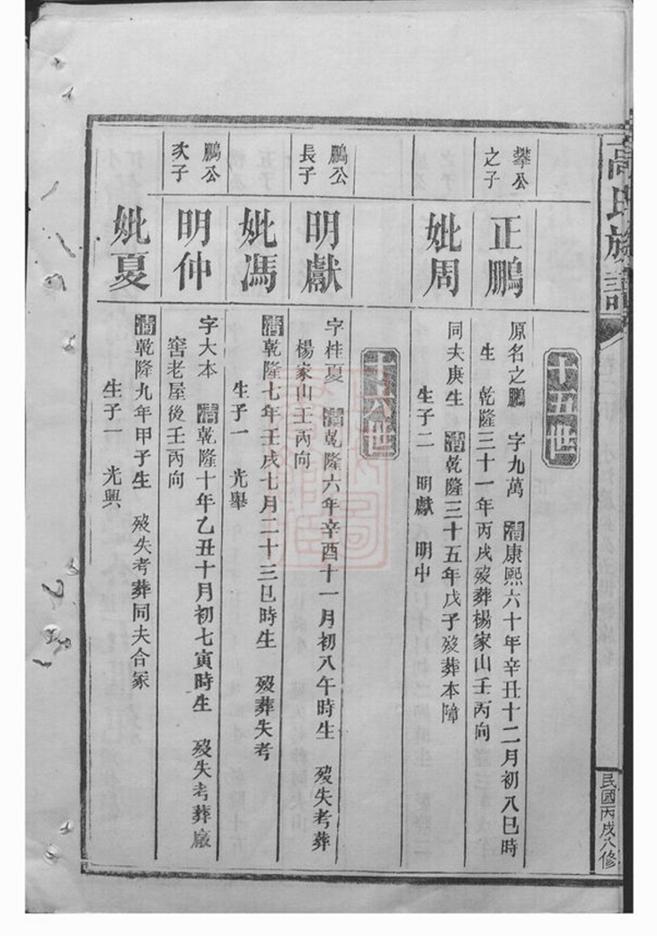 高氏族譜
十五世
攀公之子
正鵬
原名之鵬 字九萬 清康熙六十年辛丑十二月初八巳時
生 乾隆三十一年丙戌歿葬楊家山壬丙向
妣周
同夫庚生 清乾隆三十五年戊子歿葬本障
生子二 明獻 明中
十六世
鵬公長子
明獻
字桂夏 清乾隆六年辛酉十一月初八午時生 歿失考葬
楊家山壬丙向
妣馮
清乾隆七年壬戌七月二十三巳時生 歿葬失考
生子一 光舉
鵬公次子
明仲
字大本 清乾隆十年乙丑十月初七寅時生 歿失考葬廠
窖老屋後壬丙向
妣夏
清乾隆九年甲子生 歿失考葬同夫合冢
生子一 光興
民國丙戌八修